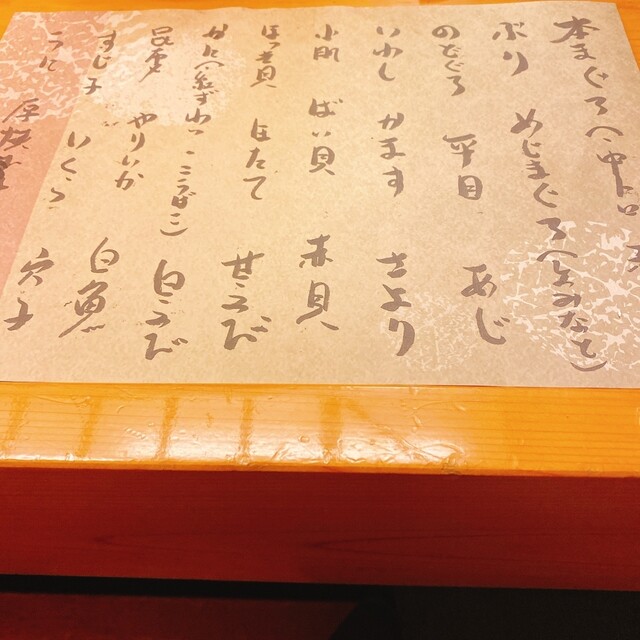 本まぐろ(中トロ
ぶり めじまぐろ(とみなと)
のどぐろ 平目 あじ
いわし かます さより
小肌 ばい貝 赤貝
ほっき貝 ほたて 甘えび
かに(紅ずわい こうばこ)
昆布 やりいか 白えび
すじ子 いくら 白魚
うに 厚焼 穴子